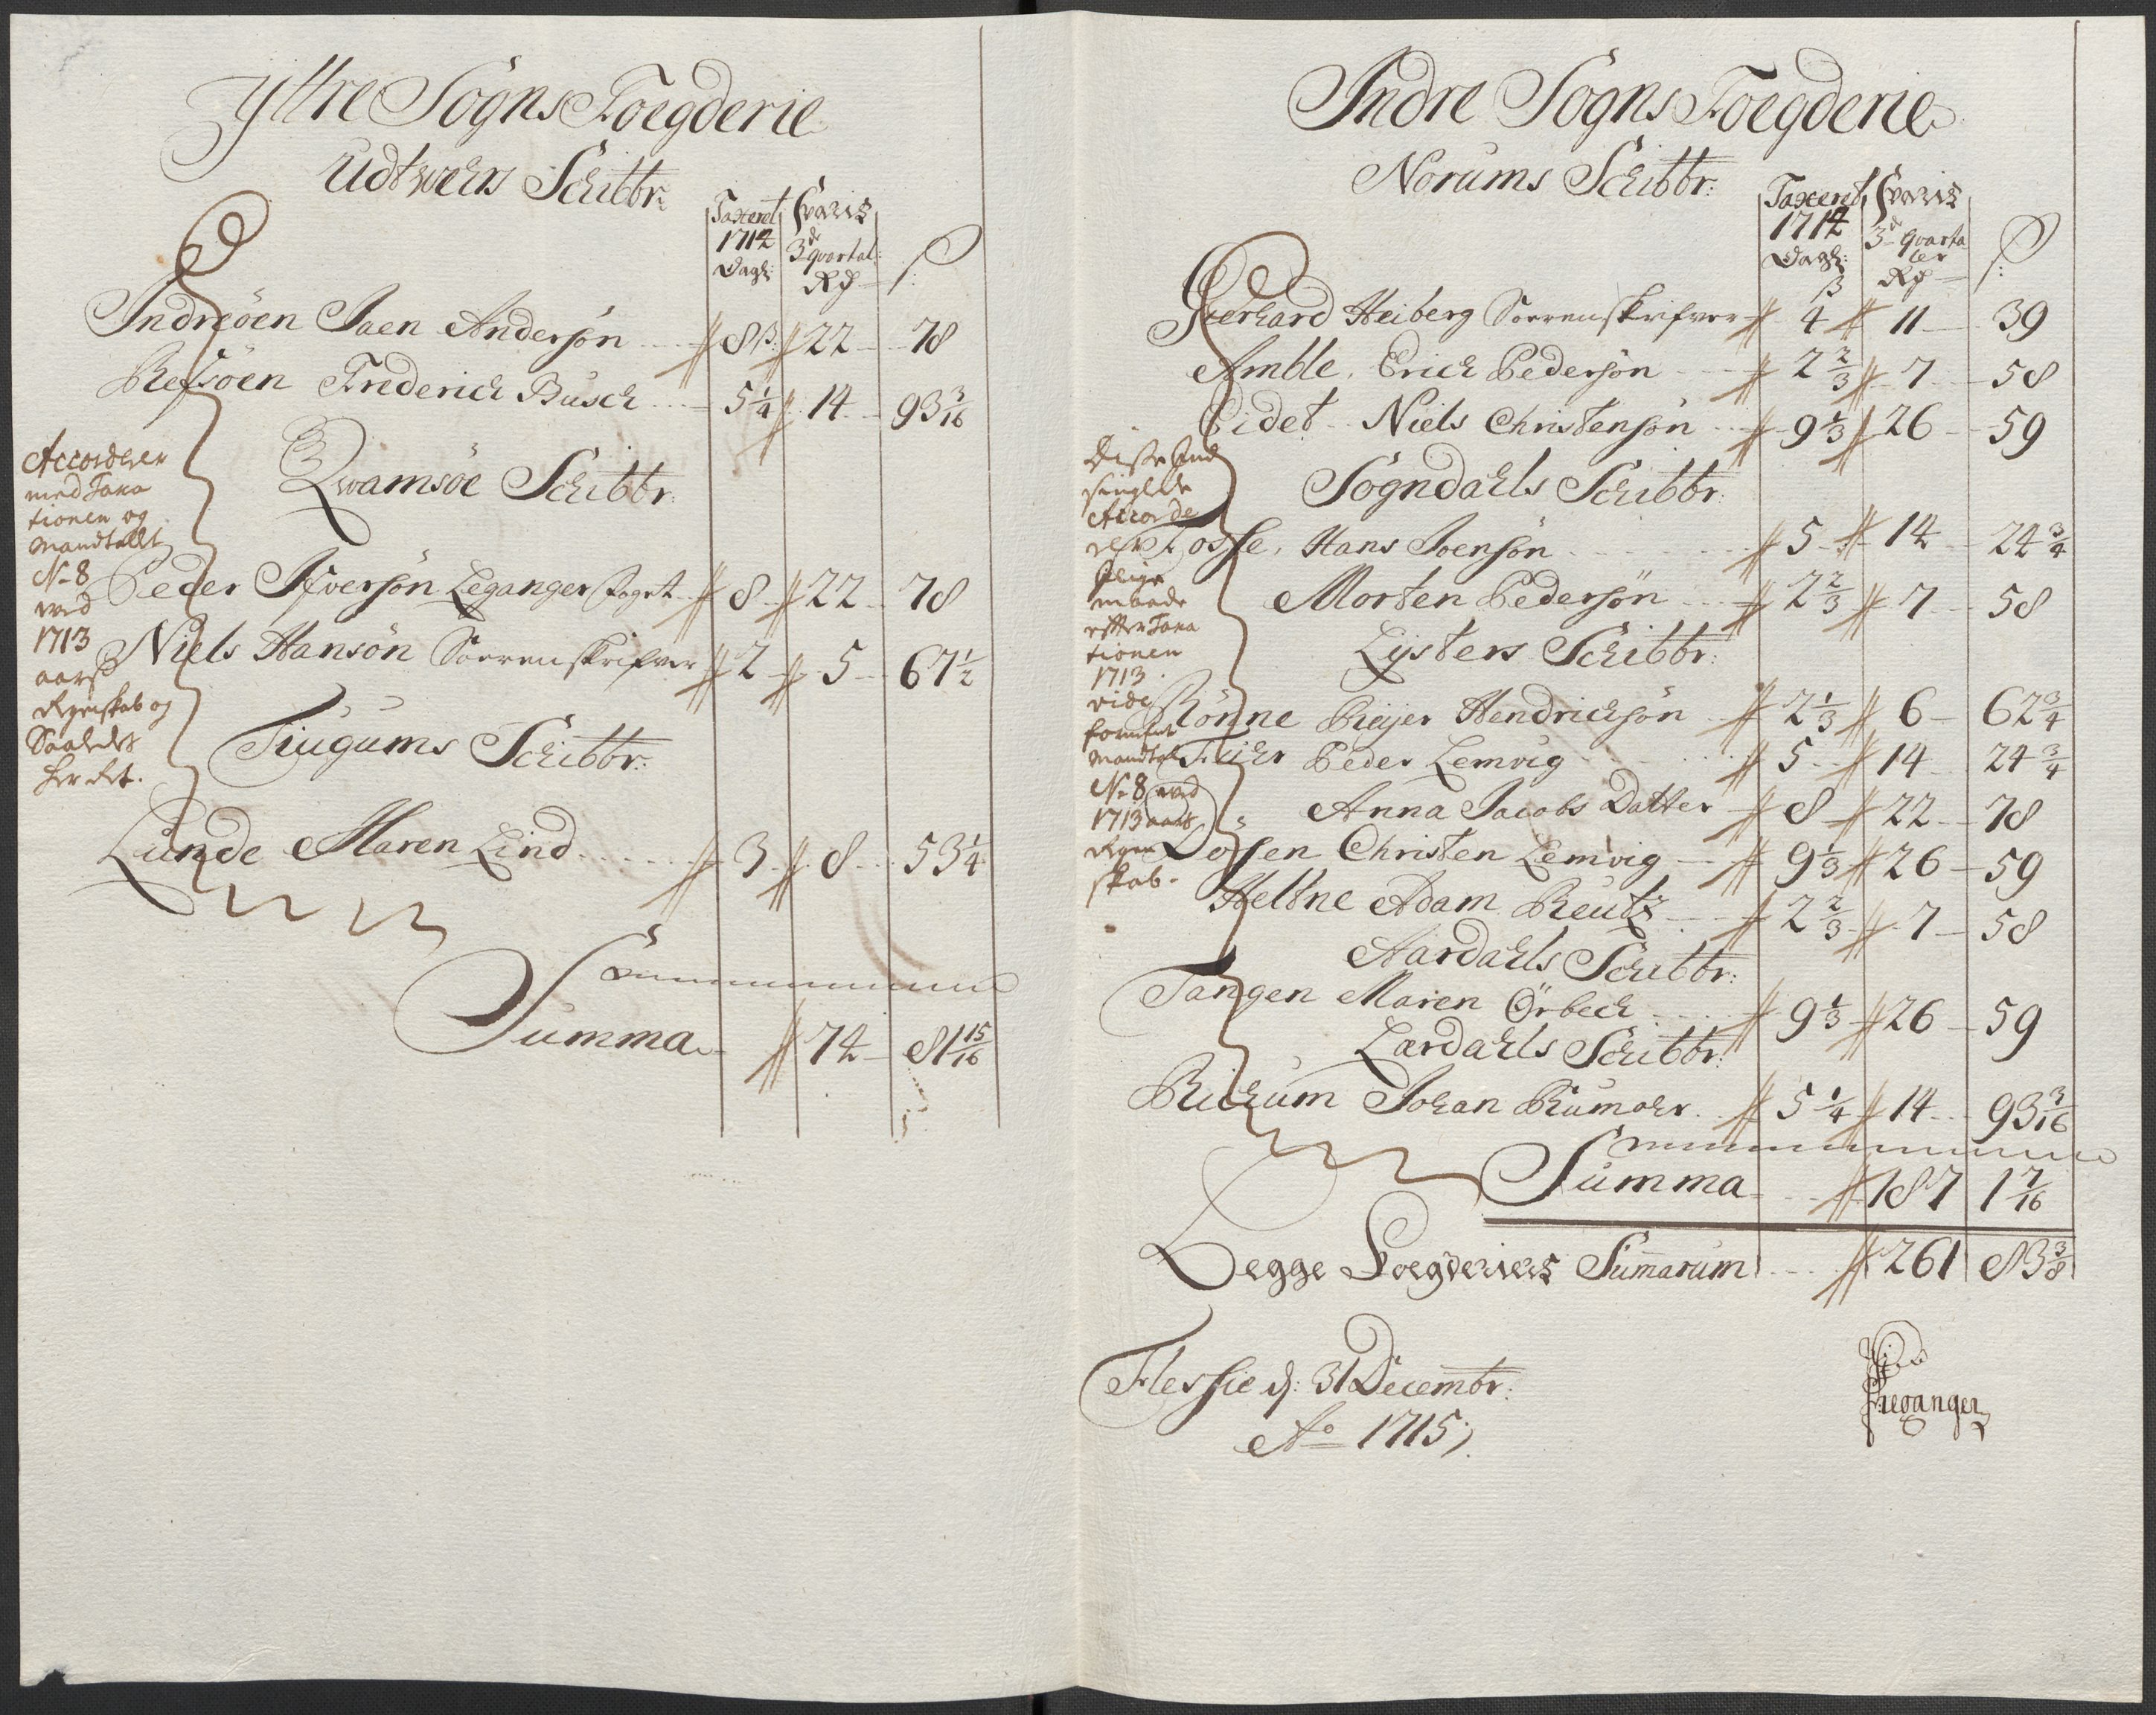 Ÿttre Sogns Foegderie
Udtwehrs Schibbr:
Taxeret 1714 Dagl:
Svaris 3de quartal: Rd
ß:
Indreöen Joen Andersön 8 ß: 22 78
Refsöen Friderich Busch 5 1/4 14 93 3/16
Qwamsöe Schibbr:
Peder Ifversön Leganger Foget 8 22 78
Niels Hansön Sorrenskrifver 2 5 67 1/2
Tiugums Schibbr:
Lunde Maren Lind 3 8 53 1/4
Summa 74 81 15/16
Accorderer
med Taxa
tionen og
Mandtallet
No 8
ved
1713
aars
Regnskab og
Saaledes
her ret.
Indre Sogns Foegderie
Norums Schibbr:
Taxeret 1714 Dagl: ß
Svaris 3de quarta ler Rd
ß:
Gierhard Heiberg Sorrenskrifver 4 11 39
Amble, Erich Pedersön 2 2/3 7 58
Eidet Niels Christensön 9 1/3 26 59
Sogndahls Schibbr:
Fosse, Hans Joensön 5 14 24 3/4
Morten Pedersön 2 2/3 7 58
Lysters Schibbr:
Rönne Reijer Hendrichsön 2 1/3 6 62 3/4
Peder Lemvig 5 14 24 3/4
" Anna Jacobs Datter 8 22 78
Dosen Christen Lemvig 9 1/3 26 59
Heltne Adam Reutz 2 2/3 7 58
Aardahls Schibbr:
Tangen Maren Örbech 9 1/3 26 59
Lardahls Schibbr:
Richum Johan Rumohr 5 1/4 14 93 3/16
Summa 187 1 7/16
Begge Foegderiers Summarum 261 83 3/8
Disse
Accorde
rer
lige
maade
efter Taxa
tionen
1713
vide
Mandtal
No 8 ved
1713 aars
Regn
skab.
Flessie d: 31 Decembr:
Ao 1715,
Leganger